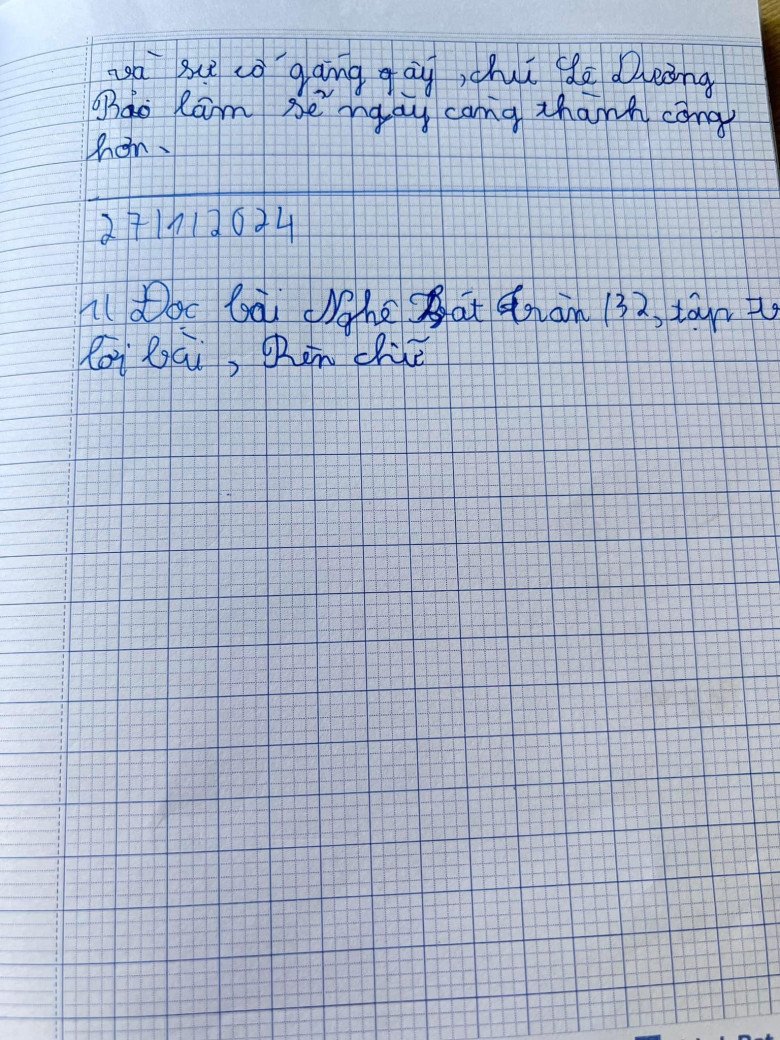 và sự cố gắng ấy, chú Lê Dương
Bảo Lâm sẽ ngày càng thành công
hơn.
27/11/2024
1/ Đọc bài Nghề Bát tràn 132, tập
lời bài, Rèn chữ